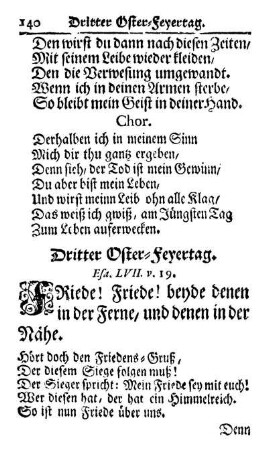 140 Dritter Oster-Feyertag.
Den wirst du dann nach diesen Zeiten/
Mit seinem Leibe wieder kleiden/
Den die Verwesung umgewandt.
Wenn ich in deinen Armen sterbe/
So bleibt mein Geist in deiner Hand.
Chor.
Derhalben ich in meinem Sinn
Mich dir thu gantz ergeben/
Denn sieh/ der Tod ist mein Gewinn/
Du aber bist mein Leben/
Und wirst meinn Leib ohn alle Klag/
Das weiß ich gwiß/ am Jüngsten Tag
Zum Leben auferwecken.
Dritter Oster-Feyertag.
Esa. LVII. v. 19.
FRiede! Friede! beyde denen
in der Ferne/ und denen in der
Nähe.
Hört doch den Friedens-Gruß/
Der diesem Siege folgen muß!
Der Sieger spricht: Mein Friede sey mit euch!
Wer diesen hat/ der hat ein Himmelreich.
So ist nun Friede über uns.
Denn